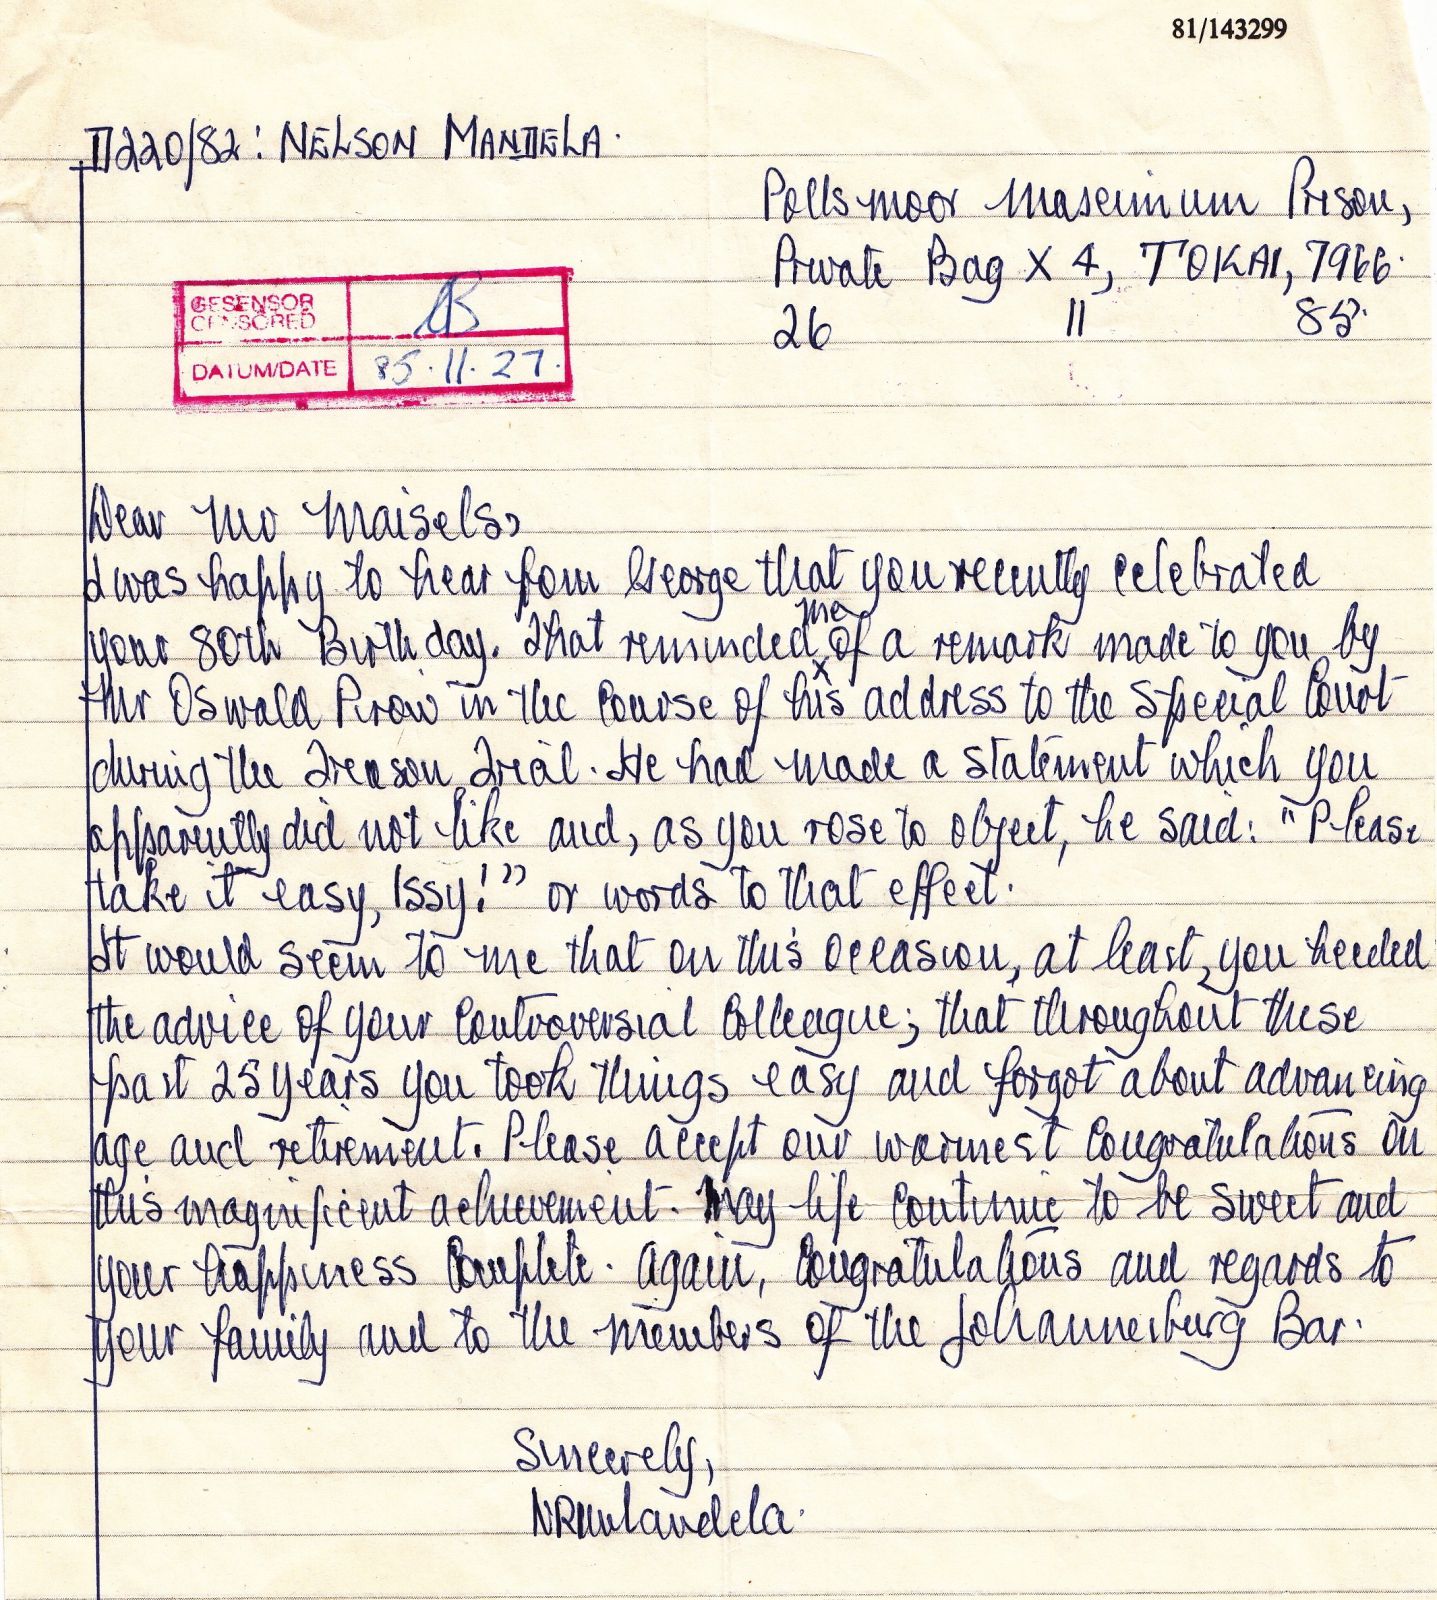 81/143299
D220/82: NELSON MANDELA.
Pollsmoor Maximum Prison,
Private Bag X 4, TOKAI, 7966.
26 11 85.
GESENSOR
CENSORED
DATUM/DATE 85.11.27.
Dear Mr Maisels,
I was happy to hear from George that you recently celebrated
your 80th Birthday. That reminded me of a remark made to you by
Mr Oswald Pirow in the course of his address to the Special Court
during the Treason Trial. He had made a statement which you
apparently did not like and, as you rose to object, he said: "Please
take it easy, Issy!" or words to that effect.
It would seem to me that on this occasion, at least, you heeded
the advice of your controversial colleague; that throughout these
past 25 years you took things easy and forgot about advancing
age and retirement. Please accept our warmest congratulations on
this magnificent achievement. May life continue to be sweet and
your happiness complete. Again, congratulations and regards to
your family and to the members of the Johannesburg Bar.
Sincerely,
NRMandela.